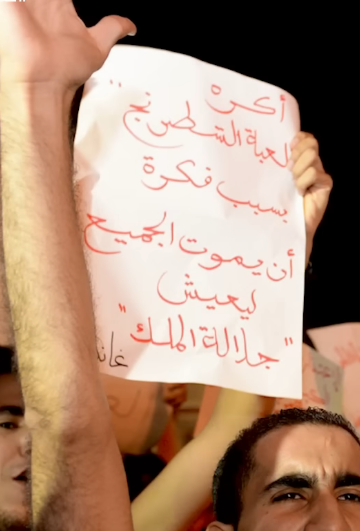 أكره
لعبة الشطرنج ..
بسبب فكرة
أن يموت الجميع
ليعيش
"جلالة الملك"